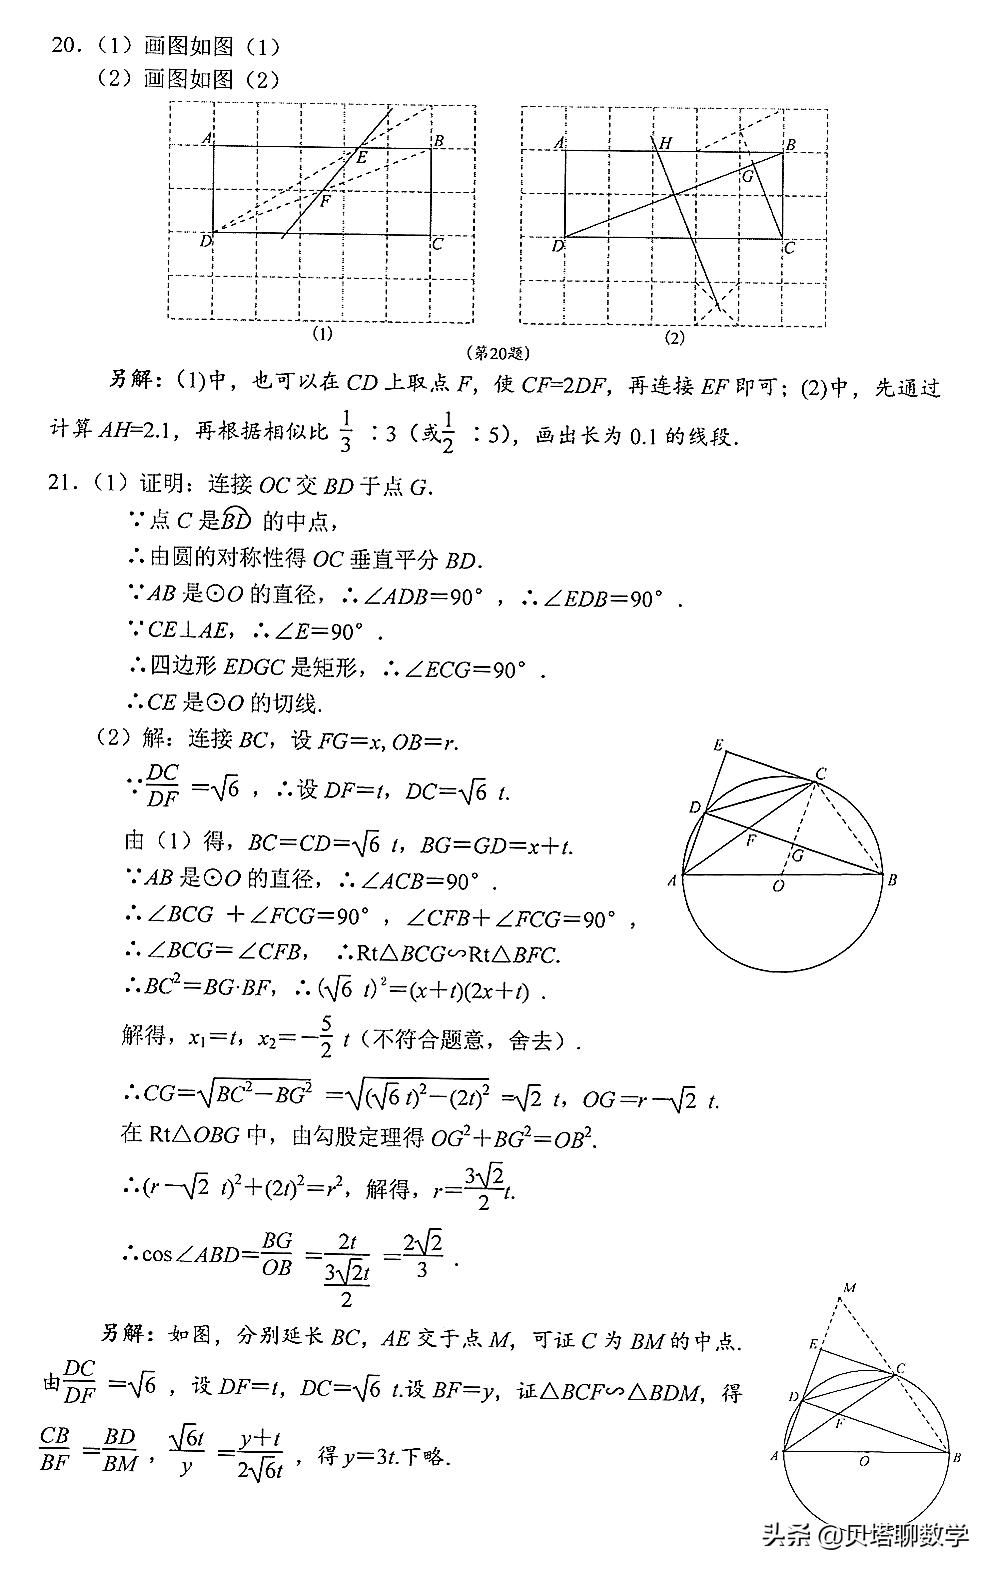 20.（1）画图如图（1）
（2）画图如图（2）
A
B
E
F
D
C
（1）
A
H
B
G
D
C
（2）
（第20题）
另解：(1)中，也可以在 CD 上取点 F，使 CF=2DF，再连接 EF 即可；(2)中，先通过
计算 AH=2.1，再根据相似比 1/3 ：3（或1/2 ：5），画出长为 0.1 的线段.
21.（1）证明：连接 OC 交 BD 于点 G.
∵点 C 是⌒BD 的中点，
∴由圆的对称性得 OC 垂直平分 BD.
∵AB 是⊙O 的直径，∴∠ADB=90°，∴∠EDB=90°.
∵CE⊥AE，∴∠E=90°.
∴四边形 EDGC 是矩形，∴∠ECG=90°.
∴CE 是⊙O 的切线.
（2）解：连接 BC，设 FG=x, OB=r.
∵DC/DF=√6，∴设 DF=t，DC=√6 t.
由（1）得，BC=CD=√6 t，BG=GD=x+t.
∵AB 是⊙O 的直径，∴∠ACB=90°.
∴∠BCG +∠FCG=90°，∠CFB+∠FCG=90°，
∴∠BCG=∠CFB， ∴Rt△BCG∽Rt△BFC.
∴BC²=BG·BF，∴(√6 t)²=(x+t)(2x+t) .
解得，x₁=t，x₂=－5/2 t（不符合题意，舍去）.
∴CG=√(BC²－BG²) =√((√6 t)²－(2t)²) =√2 t，OG=r－√2 t.
在 Rt△OBG 中，由勾股定理得 OG²+BG²=OB².
∴(r－√2 t)²+(2t)²=r²，解得，r=3√2/2 t.
∴cos∠ABD=BG/OB=2t/(3√2t/2)=2√2/3 .
E
C
D
F
G
A
O
B
另解：如图，分别延长 BC，AE 交于点 M，可证 C 为 BM 的中点.
由DC/DF=√6，设 DF=t，DC=√6 t.设 BF=y，证△BCF∽△BDM，得
CB/BF=BD/BM，√6t/y=(y+t)/(2√6t)，得 y=3t.下略.
M
E
C
D
F
A
O
B
头条 @贝塔聊数学